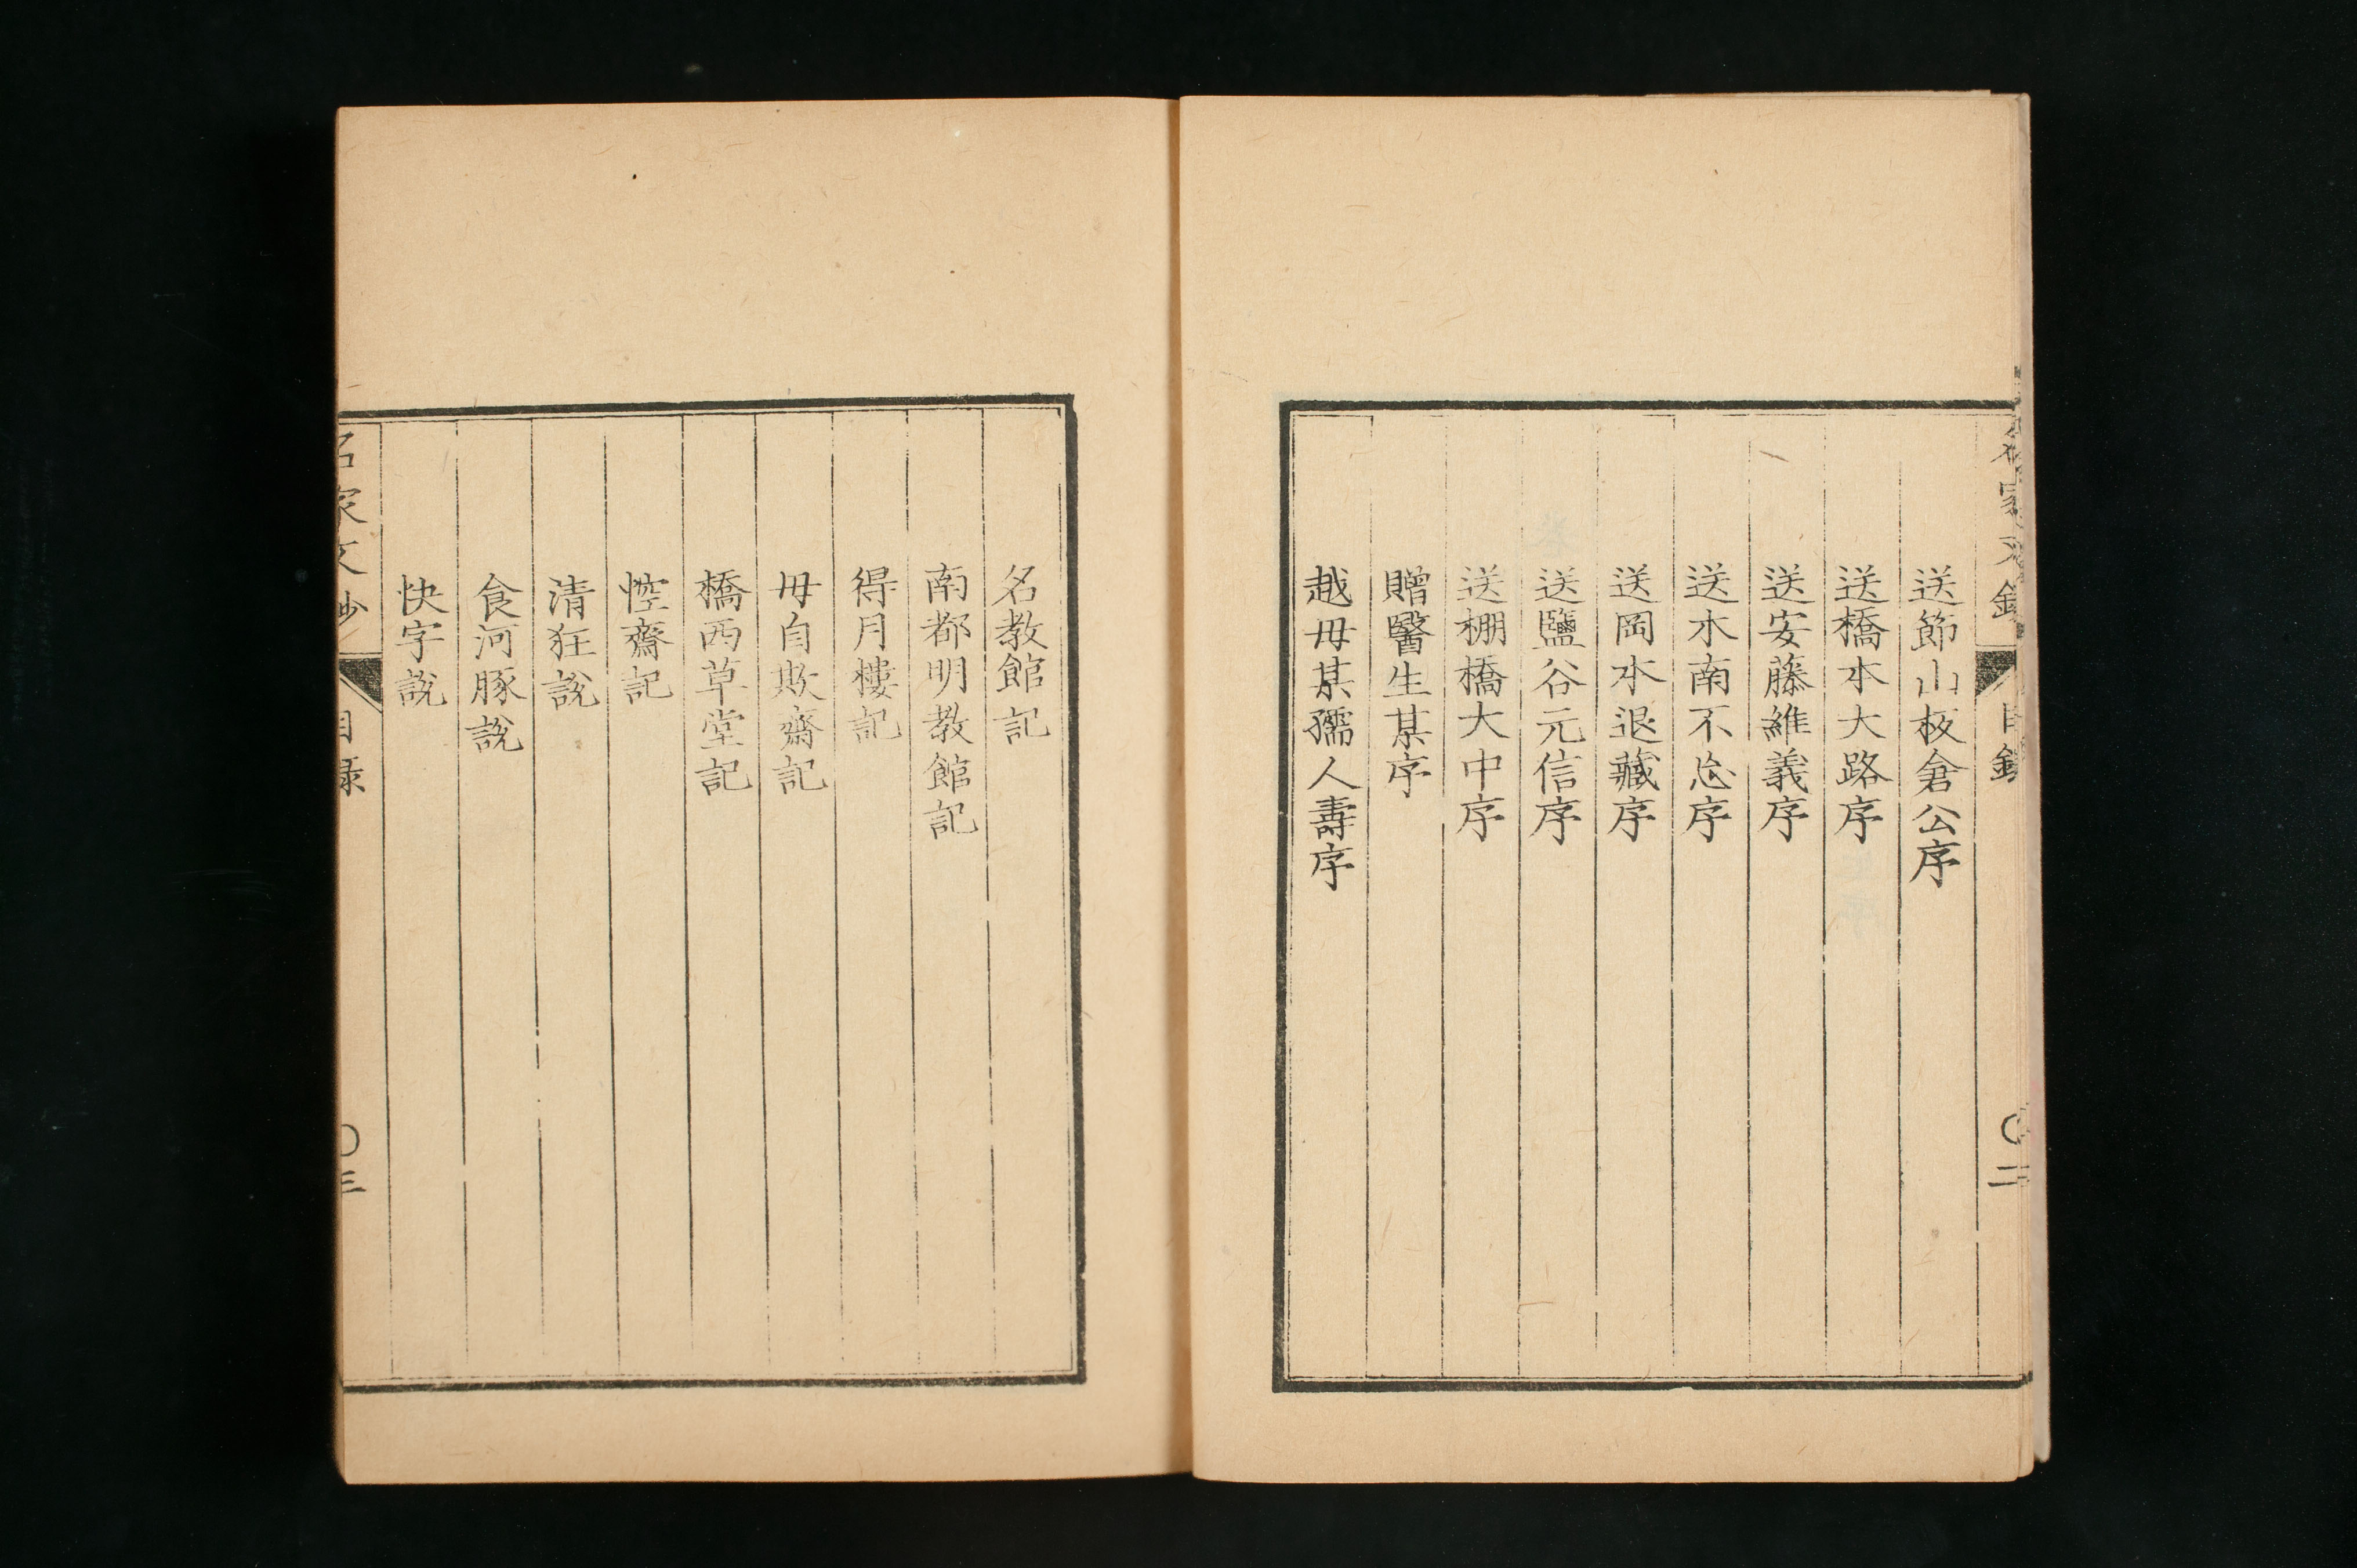 目錄
二
送節山板倉公序
送橋本大路序
送安藤維義序
送水南不怠序
送岡本退藏序
送鹽谷元信序
送棚橋大中序
贈醫生某序
越毋某孺人壽序
名教館記
南都明教館記
得月樓記
毋自欺齋記
橋西草堂記
悾齋記
清狂說
食河豚說
快字說
名家文鈔
目錄
三